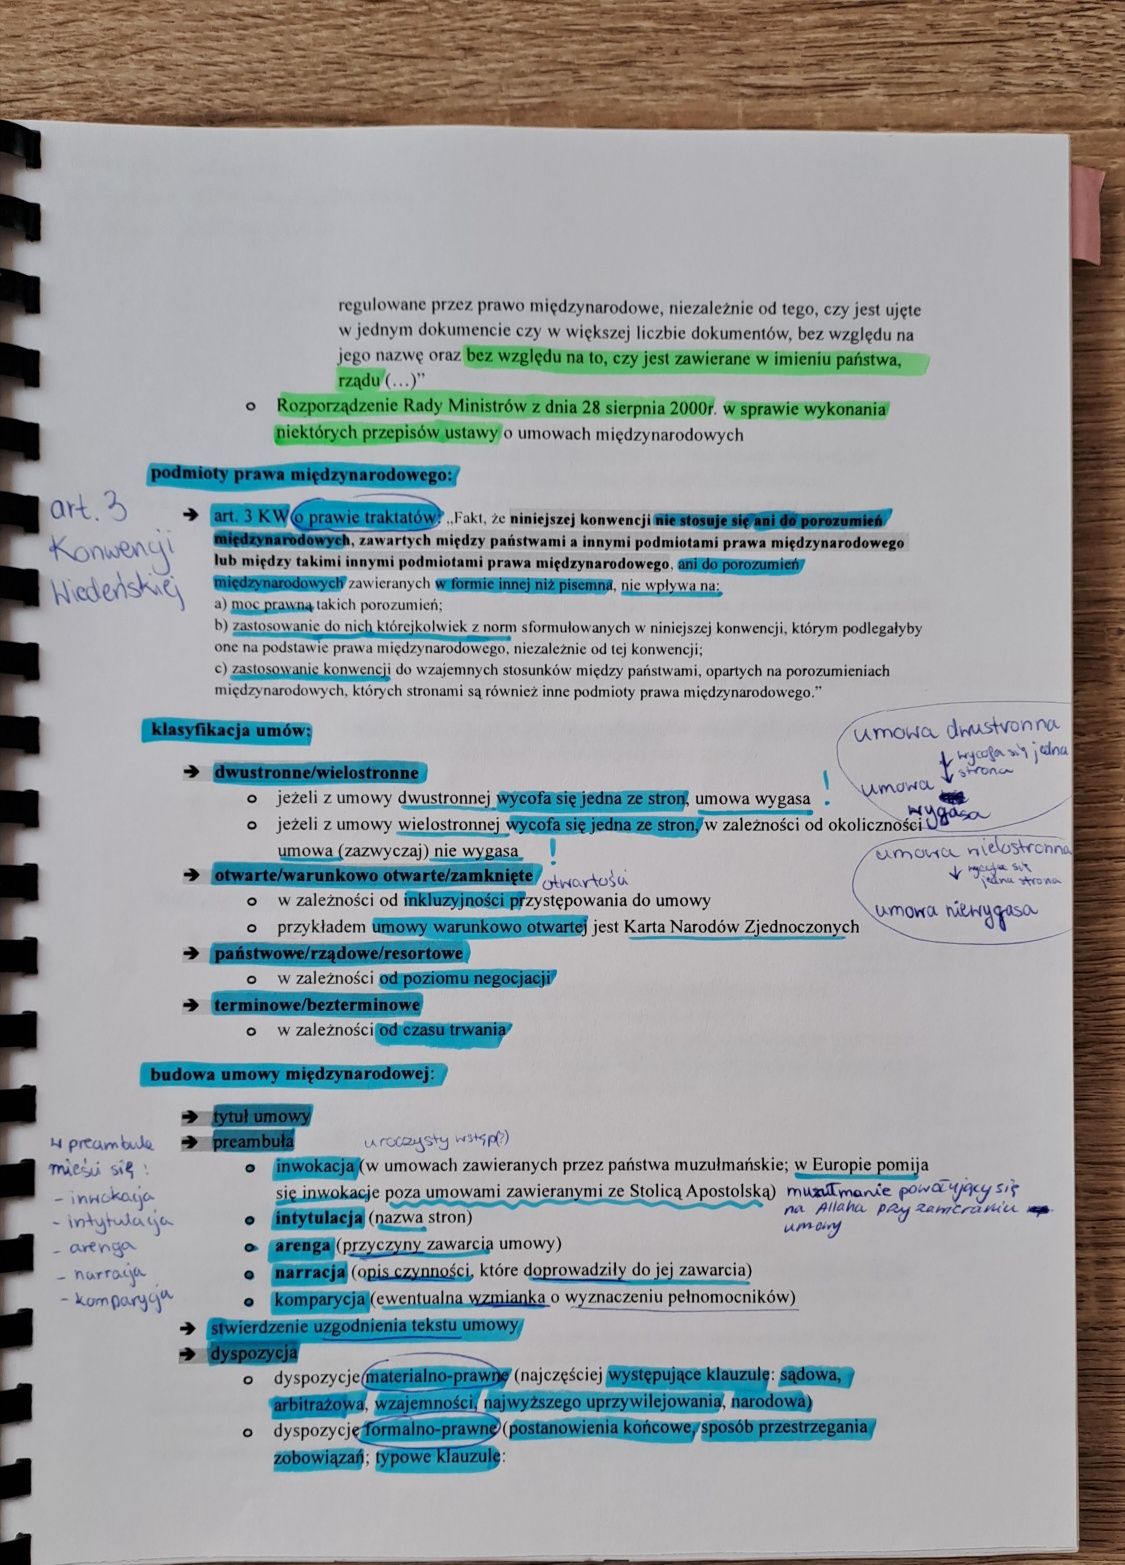 regulowane przez prawo międzynarodowe, niezależnie od tego, czy jest ujęte
w jednym dokumencie czy w większej liczbie dokumentów, bez względu na
jego nazwę oraz bez względu na to, czy jest zawierane w imieniu państwa,
rządu (...)”
o Rozporządzenie Rady Ministrów z dnia 28 sierpnia 2000r. w sprawie wykonania
niektórych przepisów ustawy o umowach międzynarodowych
podmioty prawa międzynarodowego:
art. 3
Konwencji
Wiedeńskiej
➔ art. 3 KW o prawie traktatów: „Fakt, że niniejszej konwencji nie stosuje się ani do porozumień
międzynarodowych, zawartych między państwami a innymi podmiotami prawa międzynarodowego
lub między takimi innymi podmiotami prawa międzynarodowego, ani do porozumień
międzynarodowych zawieranych w formie innej niż pisemna, nie wpływa na:
a) moc prawną takich porozumień;
b) zastosowanie do nich którejkolwiek z norm sformułowanych w niniejszej konwencji, którym podlegałyby
one na podstawie prawa międzynarodowego, niezależnie od tej konwencji;
c) zastosowanie konwencji do wzajemnych stosunków między państwami, opartych na porozumieniach
międzynarodowych, których stronami są również inne podmioty prawa międzynarodowego.”
klasyfikacja umów:
umowa dwustronna
↓ wycofa się jedna
↓ strona
umowa
wygasa
➔ dwustronne/wielostronne
o jeżeli z umowy dwustronnej wycofa się jedna ze stron, umowa wygasa !
o jeżeli z umowy wielostronnej wycofa się jedna ze stron, w zależności od okoliczności
umowa (zazwyczaj) nie wygasa !
umowa wielostronna
↓ wycofa się
jedna strona
umowa niewygasa
➔ otwarte/warunkowo otwarte/zamknięte otwartości
o w zależności od inkluzyjności przystępowania do umowy
o przykładem umowy warunkowo otwartej jest Karta Narodów Zjednoczonych
➔ państwowe/rządowe/resortowe
o w zależności od poziomu negocjacji
➔ terminowe/bezterminowe
o w zależności od czasu trwania
budowa umowy międzynarodowej:
➔ tytuł umowy
➔ preambuła uroczysty wstęp(?)
w preambule
mieści się:
- inwokacja
- intytulacja
- arenga
- narracja
- komparycja
● inwokacja (w umowach zawieranych przez państwa muzułmańskie; w Europie pomija
się inwokacje poza umowami zawieranymi ze Stolicą Apostolską) muzułmanie powołujący się
na Allaha przy zawieraniu
umowy
● intytulacja (nazwa stron)
● arenga (przyczyny zawarcia umowy)
● narracja (opis czynności, które doprowadziły do jej zawarcia)
● komparycja (ewentualna wzmianka o wyznaczeniu pełnomocników)
➔ stwierdzenie uzgodnienia tekstu umowy
➔ dyspozycja
o dyspozycje materialno-prawne (najczęściej występujące klauzule: sądowa,
arbitrażowa, wzajemności, najwyższego uprzywilejowania, narodowa)
o dyspozycje formalno-prawne (postanowienia końcowe, sposób przestrzegania
zobowiązań; typowe klauzule: